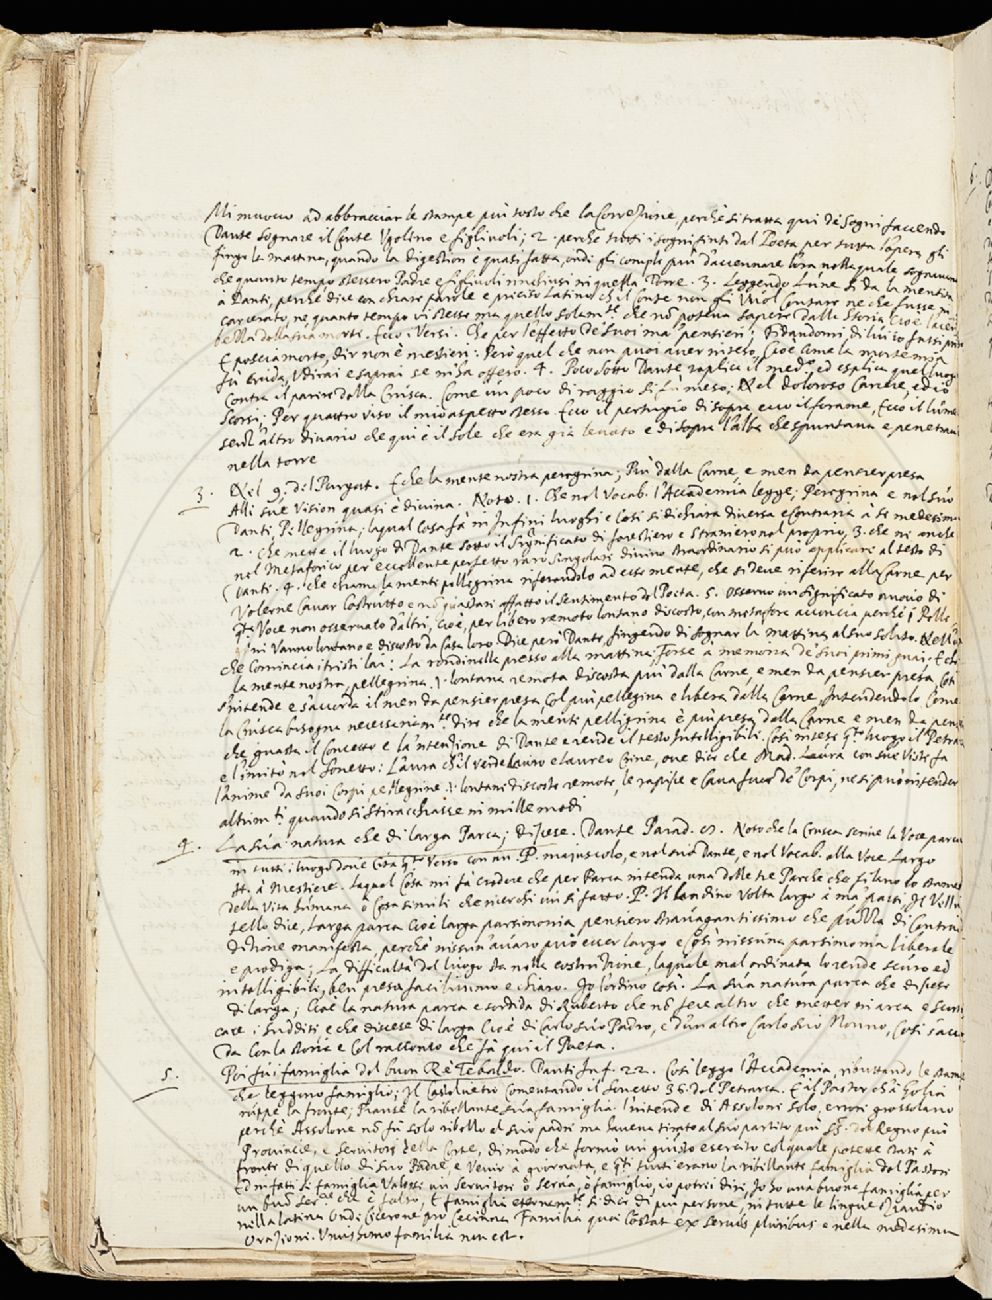 Mi muovo ad abbracciar le stampe più tosto che la Correzione, perchè si tratta qui de Sogni facendo
Dante sognare il Conte Ugolino e figliuoli; 2. perche tutti i sogni finti dal Poeta per tutta l'opera gli
finge la mattina, quando la digestion è quasi fatta, ondi gli compli più d'accennare l'ora nella quale sognauano
che quanto tempo stessero Padre e figliuoli rinchiusi in quella Torre. 3. Leggendo Lune si da la mentita
à Danti, perche dice con chiare parole e preciso Latino ch'il Conte non gli Vuol Contare ne che fusse in
carcerato, ne quanto tempo vi stesse ma quello solam.te che nõ poteua sapere dalle Storia Cioè l'acer
bezza della sua morte. Ecco i Versi. Che per l'effetto de suoi ma' pensieri; fidandomi di lui io fussi preso
E poscia morto, dir non è mestieri; Però quel che non puoi aver inteso, Cioè Come la morte mia
fù cruda, Udirai e saprai se m'ha offeso. 4. Poco sotto Dante replica il med.o ed esplica quel luogo
Contra il parire della Crusca. Come un poco di raggio si fù messo; Nel doloroso Carcere, ed io
scorsi; Per quattro visi il mio aspetto stesso Ecco il pertugio di sopra ecco il forame, Ecco il lume
senz'altro diuario che qui è il sole che era già leuato e di sopra l'alba che spuntaua e penetraua
nella torre
3. Nel 9. del Purgat. E che la mente nostra peregrina; Più dalla Carne e men da pensier presa
Alli sue Vision quasi è diuina. Noto. 1. Che nel Vocab. l'Accademia legge; Peregrina e nel suo
Danti, Pellegrina; laqual cosa fà in Infini luoghi e Così si dichiara diuersa e Contraria à se medesima
2. Che mette il luogo di Dante sotto il significato di forestiero e Straniero nel proprio, 3. che ne anche
nel Metaforico per eccellente perfetto raro singolare diuino straordinario si può applicare al testo di
Danti. 4. che chiama la menti pellegrina riferendolo ad essa mente, che si deue riferire alla Carne per
Volerne Cauar Costrutto e nõ guastare affatto il sentimento del Poeta. 5. Osseruo un significato nuouo di
q.ta Voce non osseruato d'altri, Cioè, per libero remoto lontano discosto, con metafora acconcia perchè i Pelle
grini Vanno lontano e discosto da Casa loro. Dice però Dante, fingendo di sognar la mattina al suo solito. Nell'ora
che comincia i tristi lai; La rondinella presso alla mattina; forse a memoria de' suoi primi guai; E che
la mente nostra pellegrina .j. lontana remota discosta più dalla Carne, e men da pensier presa, Così
s'intende e s'accorda il men da pensier presa Col più pellegrina e libera dalla Carne, Intendendolo Come
la Crusca bisogna necessariam.te dire che la menti pellegrina è più presa dalla Carne e men da pensier
che guasta il Concetto e la'ntenzione di Dante e rende il testo Intelligibili. Così intese q.to luogo il Petrar
e l'imitò nel sonetto: L'aura ch'il verde lauro e l'aureo Crine, oue dice che Mad. Laura con sue Viste fa
l'anime da suoi Corpi pellegrine .j. lontani discoste remote, le rapisce e Caua fuor de' Corpi, ne si può intender
altrim.ti quando si stiracchiasse in mille modi
4. La sua natura che di larga Parca; discese. Dante Parad. 8. Noto che la Crusca scriue la Voce parca
in tutti i luoghi doue Cita q.to Verso con un P. maiuscolo, e nel suo Dante, e nel Vocab. alla Voce Largo
st. à Mestiere. laqual Cosa mi fà credere che per Parca intenda una delle tre Parche che filano lo stame
della Vita humana ò Cosa simili che mi rechi un sì fatto. P. Il landino Volta larga è ma' parca, Il Vellu
tello dice, Larga parca Cioè larga parsimonia pensiero strauagantissimo che puzza di Contra
dizione manifesta, perchè nissun auaro può esser largo e Così nissuna parsimonia liberale
e prodiga; La difficultà del luogo sta nella costruzione, laquale mal ordinata lo rende scuro ed
intelligibili, ben presa facilissimo e chiaro. Io l'ordino così. La sua natura parca che discese
di larga; Cioè la natura parca e sordida di Ruberto che nõ fece altro che metter in arca e scorti
care i sudditi e che discese di larga Cioè di Carlo suo Padre, e d'un altro Carlo suo Nonno, Così s'accor
da con la storia e Col racconto che fà qui il Poeta.
5. Poi fui famiglia del buon Re Tebaldo. Danti Inf. 22. Così legge l'Accademia, ributtando le stampe
che leggono famiglio; Il Casteluetro Comentando il sonetto 36. del Petrarca. E il Pastor ch'à Golia
ruppe la fronte; Pianse la ribellante sua famiglia l'intende di Assaloni solo, errori grossolano
perchè Assalone nõ fù solo ribello al suo padri ma haueua tirato al suo partito più S.ri del Regno più
Prouincie, e seruitori della Corte, di modo che formò un giusto esercito col quale potesse stare à
fronte di quello di suo Padre, e Venir à giornata, e q.ti tutti erano la ribellante famiglia del Pastori
Ed infatti se famiglia Valesse un seruitori ò Serua, ò famiglio, io potrei dire, Io ho una buona famiglia per
un buõ ser.re che è falso, E famiglia eternam.te si dice di più persone, in tutte le lingue eziandio
nella latina Ondi Cicerone pro Cecinna Familia quæ Constat ex seruis pluribus e nella medesima
orazioni. Unus homo familia non est.